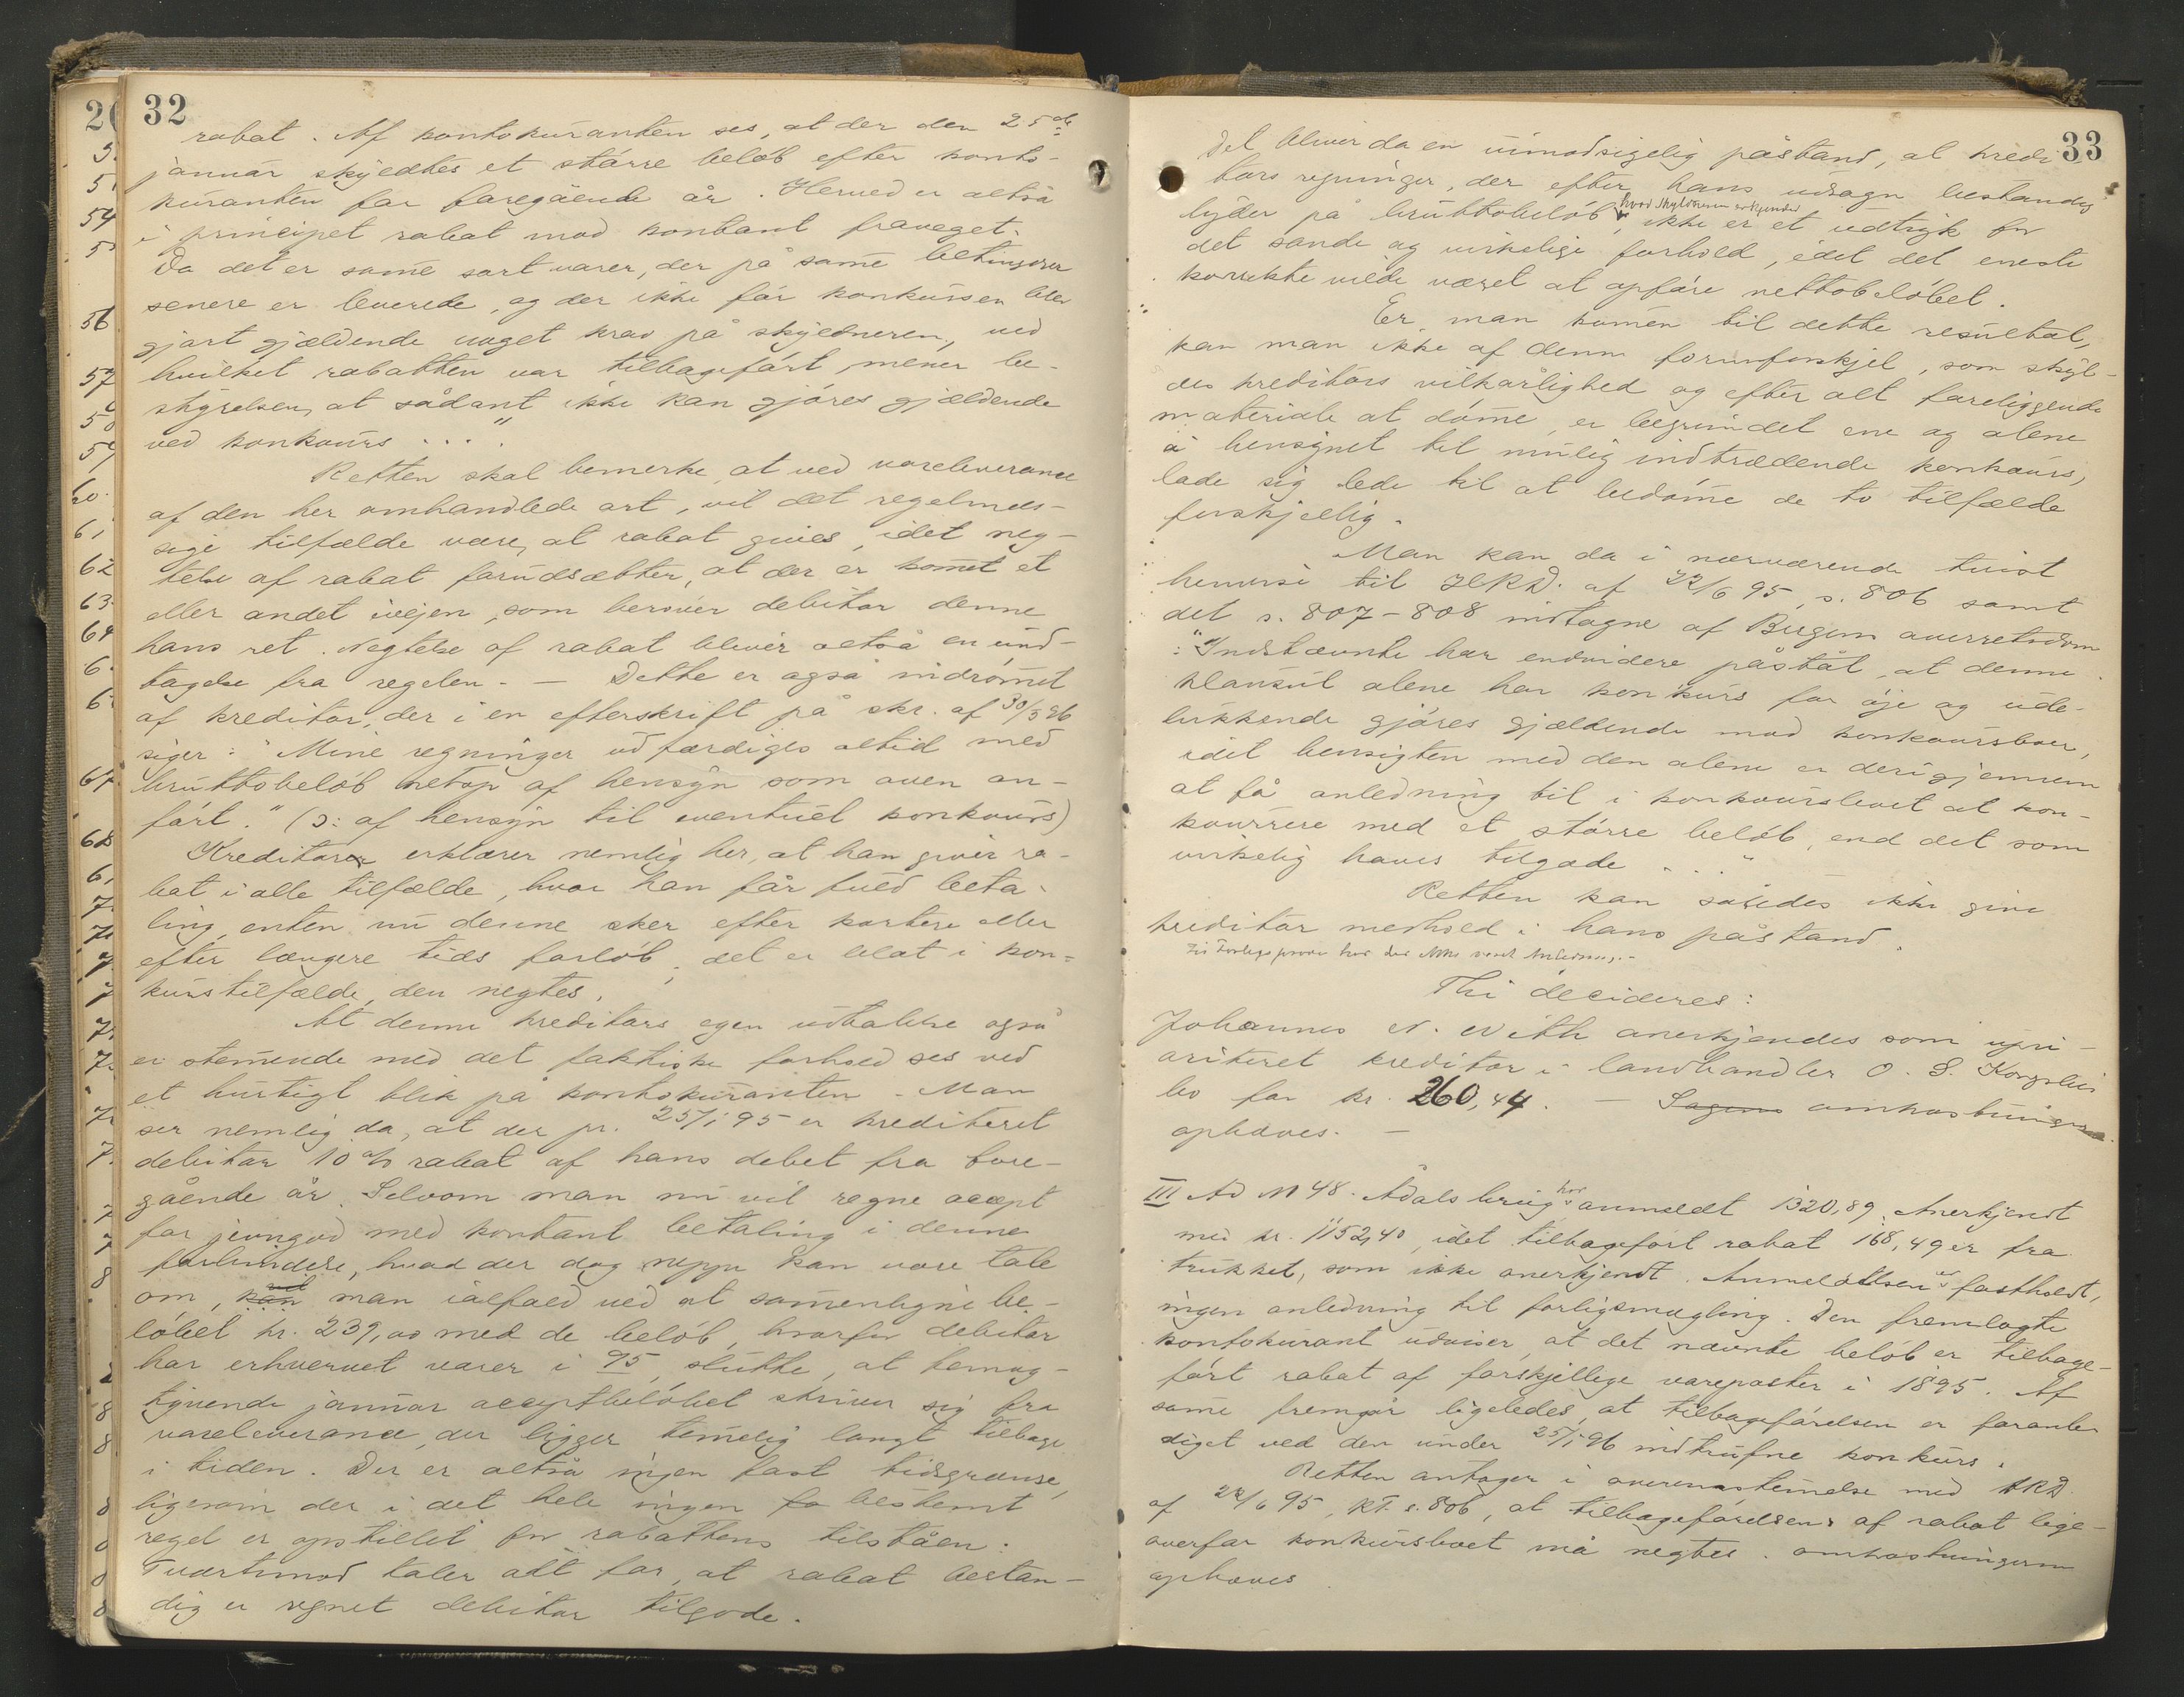 32
rabat. Af kontokuranten ses, at der den 25de
januar skyedtes et større beløb efter konto-
kuranten for foregående år. Herved er altså
i principet rabat mod kontant fraveget.
Da det er same sort varer, der på same betingelser
senere er leverede, og der ikke før konkursen blev
gjort gjældende noget krav på skyldneren, ved
hvilket rabatten var tilbageført, mener be-
styrelsen, at sådant ikke kan gjøres gjældende
ved konkurs ...."
Retten skal bemerke, at ved vareleverance
af den her omhandlede art, vil det regelmæs-
sige tilfælde være, at rabat gives, idet neg-
telse af rabat forudsætter, at der er komet et
eller andet ivejen, som berøver debitor denne
hans ret. Negtelse af rabat bliver altså en und-
tagelse fra regelen. — Dette er også indrømet
af kreditor, der i en efterskrift på skr. af 30/3 96
siger: "Mine regninger udfærdiges altid med
bruttobeløb netop af hensyn som oven an-
ført." (ɔ: af hensyn til eventuel konkurs)
Kreditor erklærer nemlig her, at han giver ra-
bat i alle tilfælde, hvor han får fuld beta-
ling, enten nu denne sker efter kortere eller
efter længere tids forløb; det er blot i kon-
kurstilfælde, den negtes.
At denne kreditors egen udtalelse også
er stemende med det faktiske forhold ses ved
et hurtigt blik på kontokuranten. Man
ser nemlig da, at der pr. 25/1 95 er krediteret
debitor 10 % rabat af hans debet fra fore-
gående år. Selvom man nu vil regne accept
for jevngod med kontant betaling i denne
forbindelse, hvad der dog neppe kan være tale
om, kan man ialfald ved at samenligne be-
løbet kr. 239,00 med de beløb, hvorfor debitor
har erhvervet varer i 95, slutte, at hemeg-
tignende januar acceptbeløbet skriver sig fra
vareleverance, der ligger temelig langt tilbage
i tiden. Der er altså ingen fast tidsgrænse,
ligesom der i det hele ingen fa bestemt
regel er opstillet for rabattens tilståen.
Tvertimod taler alt for, at rabat bestan-
dig er regnet debitor tilgode.
33
Det bliver da en uimodsigelig påstand, at kredi-
tors regninger, der efter hans udsagn bestandig
hvad skyldneren erkjender
lyder på bruttobeløb, ikke er et udtryk for
det sande og virkelige forhold, idet det eneste
korrekte vilde været at opføre nettobeløbet.
Er man komen til dette resultat,
kan man ikke af denne formforskjel, som skyl-
des kreditors vilkårlighed og efter alt foreliggende
materiale at døme, er begrundet ene og alene
i hensynet til mulig indtrædende konkurs,
lade sig lede til at bedøme de to tilfælde
forskjellig.
Man kan da i nærværende tvist
henvise til HRD. af 22/6 95, s. 806 samt
det s. 807-808 indtagne af Bergens overretsdom
: "Indstævnte har endvidere påståt, at denne
klausul alene har konkurs for øje og ude-
lukkende gjøres gjældende mod konkursboer,
idet hensigten med den alene er derigjennem
at få anledning til i konkursboet at kon-
kurrere med et større beløb, end det som
virkelig haves tilgode ...."
Retten kan således ikke give
kreditor medhold i hans påstand.
Til Forligsprøve har der ikke været Anledning.-
Thi decideres:
Johannes N. With anerkjendes som upri-
oriteret kreditor i landhandler O. S.
bo for kr. 260,44. — Sagens omkostninger
ophæves. —
III Ad № 48. Ådals brug har anmeldt 1320,89. Anerkjendt
med kr. 1152,40, idet tilbageført rabat 168,49 er fra
trukket, som ikke anerkjendt. Anmeldelsen er fastholdt,
ingen anledning til forligsmægling. Den fremlagte
kontokurant udviser, at det nævnte beløb er tilbage-
ført rabat af forskjellige vareposter i 1895. Af
same fremgår ligeledes, at tilbageførelsen er foranle-
diget ved den under 25/1 96 indtrufne konkurs.
Retten antager i overenstemelse med HRD.
af 22/6 95, RT. s. 806, at tilbageførelsen af rabat lige-
overfor konkursboet må negtes. Omkostningerne
ophæves.